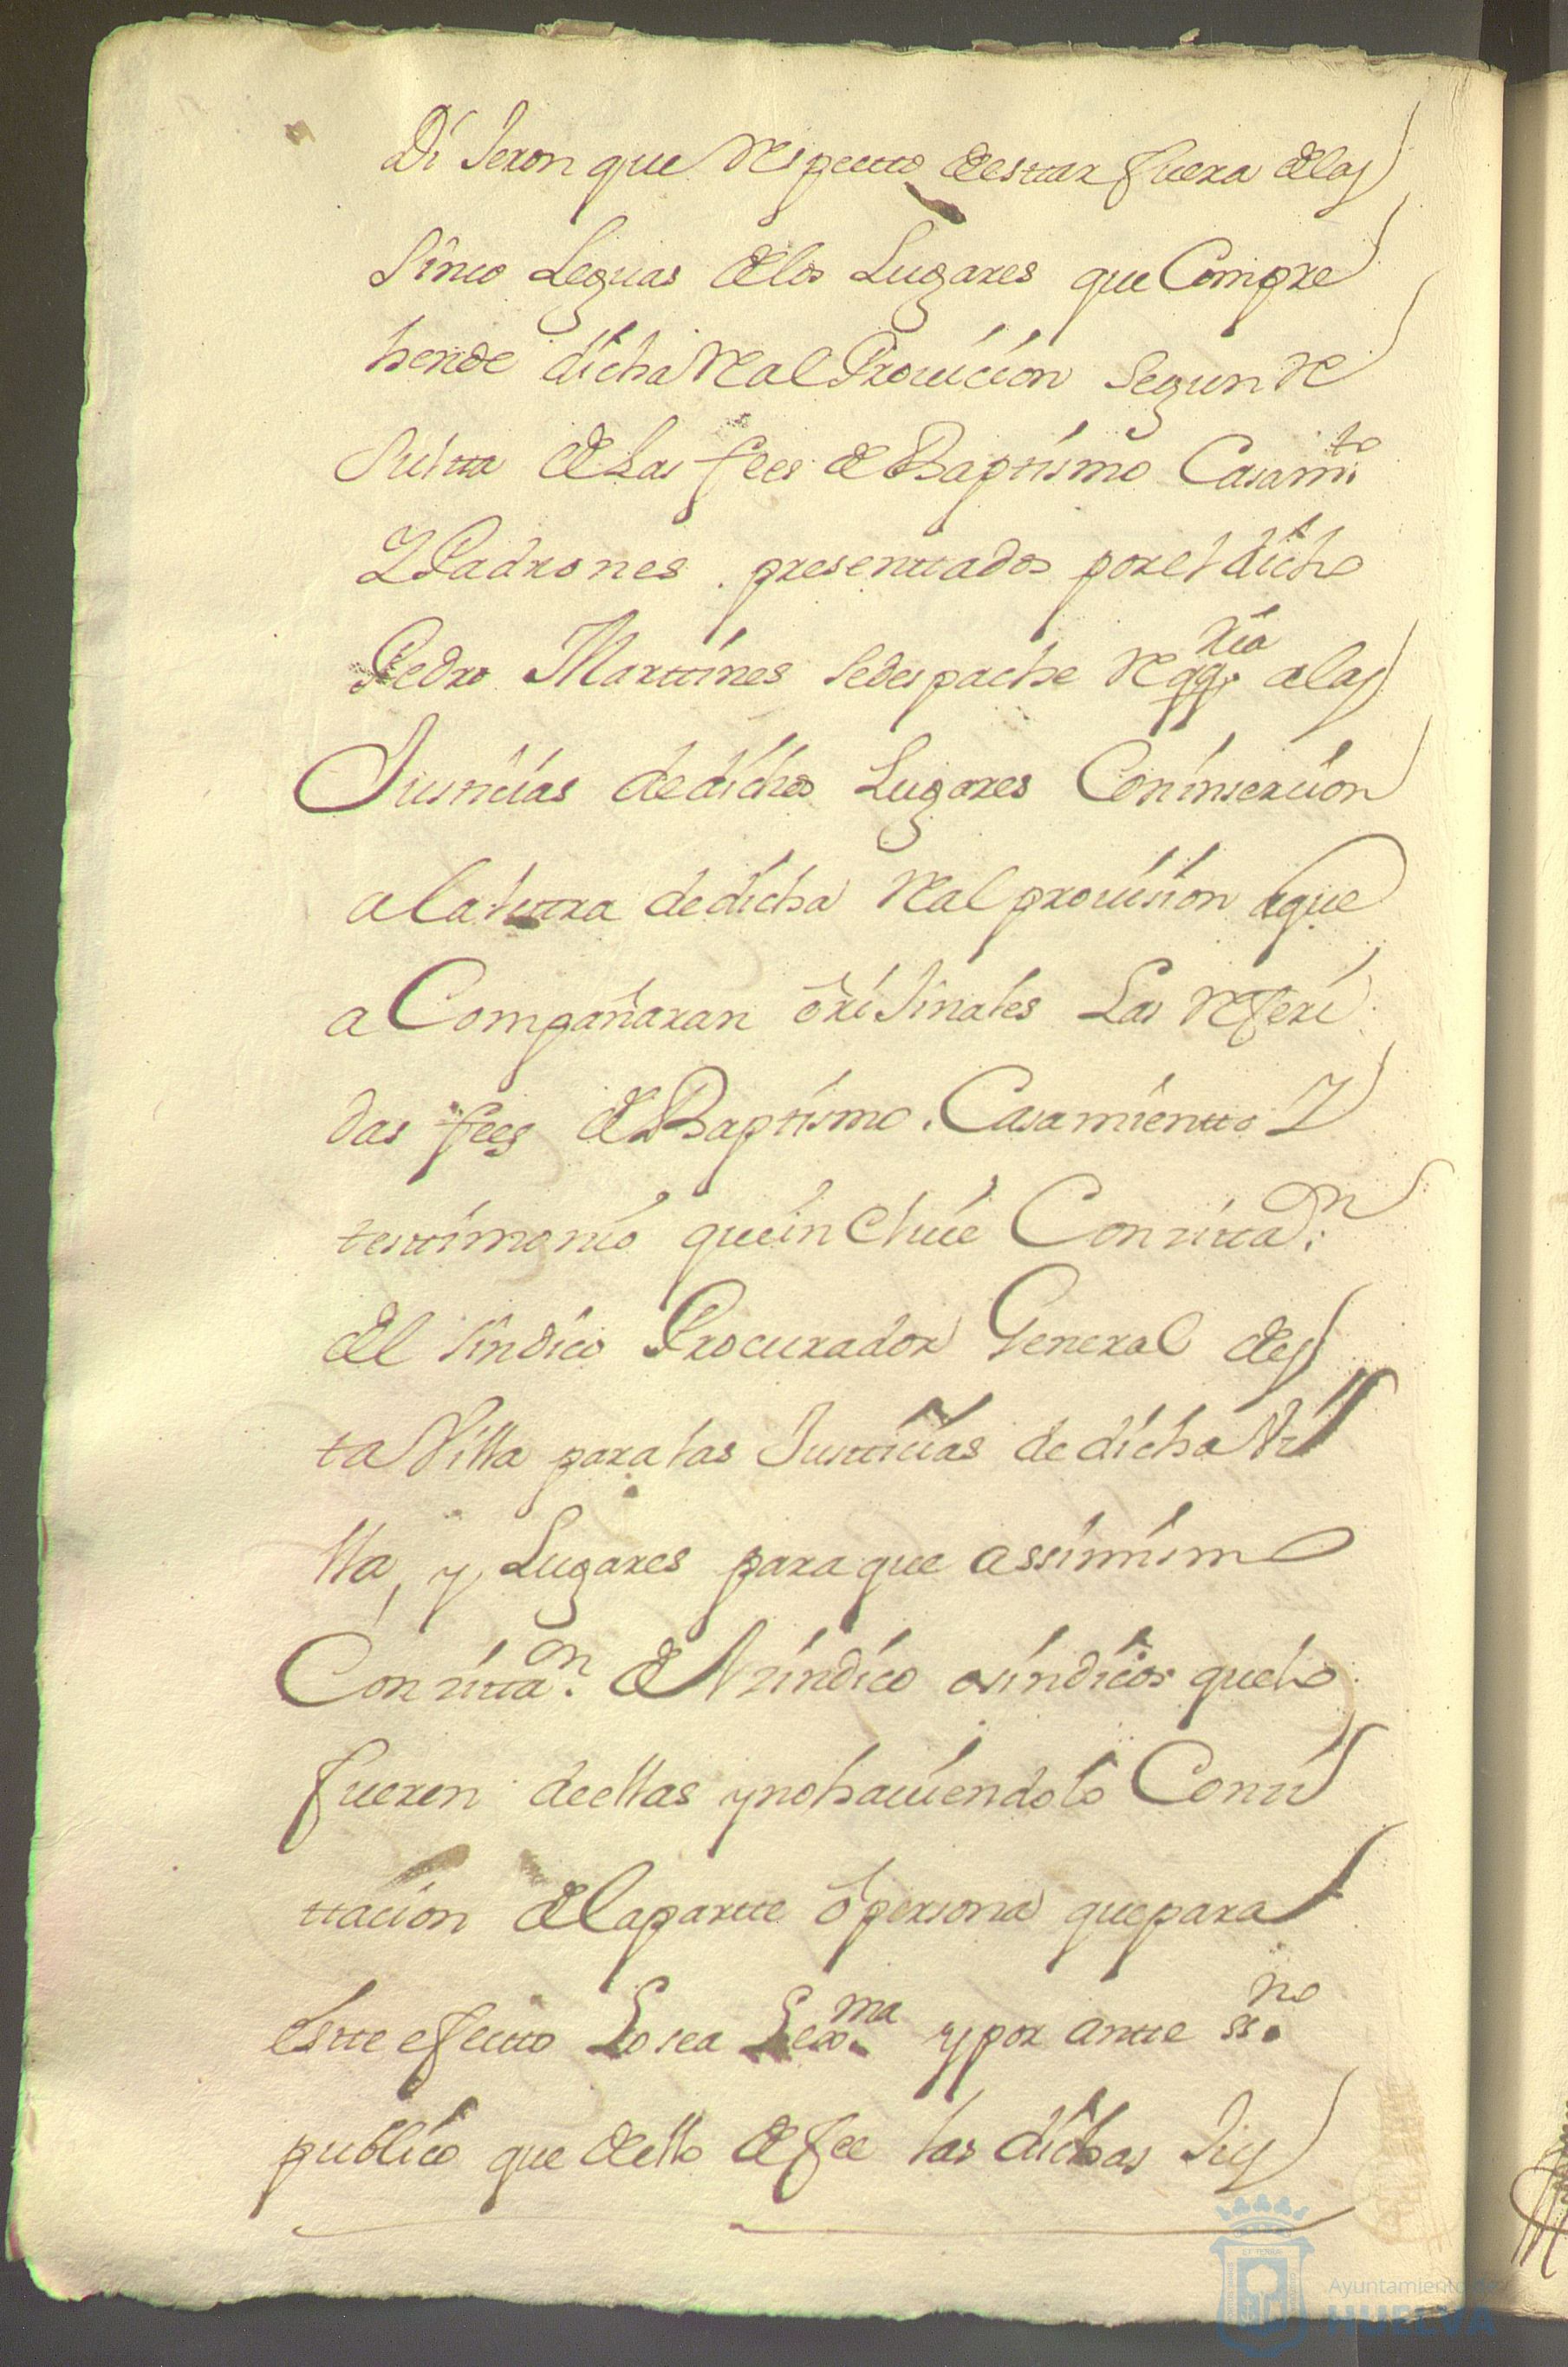 Di Jeron que Respectto de esttar fuera de las
Sinco Leguas de los Lugares que Compre
hende dicha Real Provicion Segun Re
sultta de Las fees de Baptismo Casamto
Y Padrones presenttados por el dicho
Pedro Marttines se despache Reqqria a las
Justicias de dichos Lugares Con insercion
a la lettra de dicha Real provision a que
a Compañaran orijinales Las Referi
das fees de Baptismo. Casamientto Y
testtimonio que incluie Con zittaon
del sindico Procurador General des
ta Villa para las Justticias de dicha Vi
lla, y Lugares para que assimismo
Con zittaon del sindico o sindicos que lo
fueren de ellas y no haviendolo Con zi
ttacion de la partte o persona que para
estte efectto Lo sea Lexma y por antte ssno
publico que de ello de fee las dichas Jus
Ayuntamiento de
HUELVA